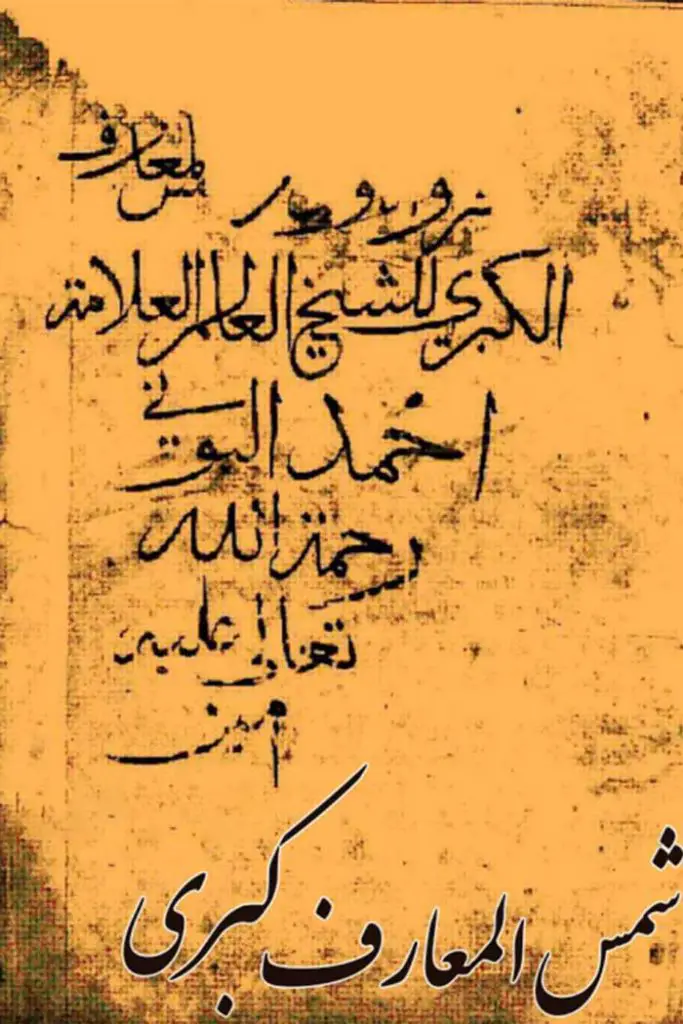 شمس المعارف
الكبرى للشيخ العالم العلامة
احمد البوني
رحمة الله
تعالى عليه
أمين
شمس المعارف كبرى